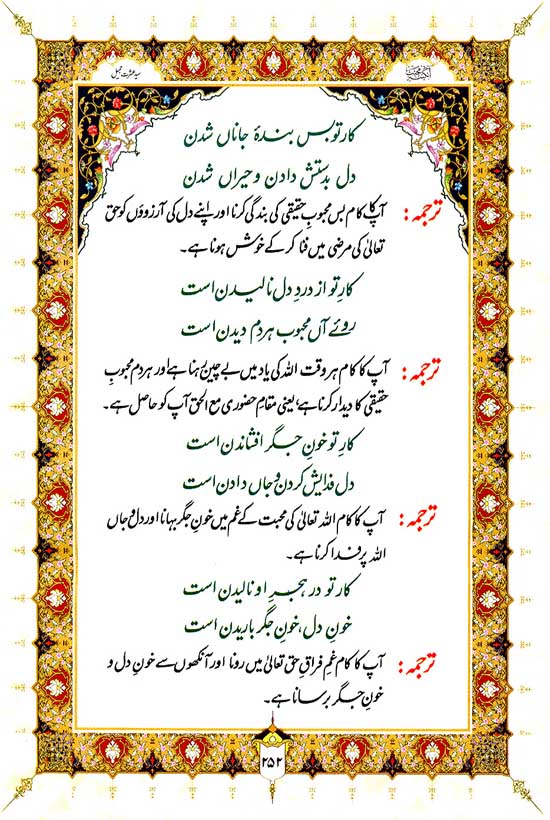 سید عشرت جمیل
کارِ تو بس بندۂ جاناں شدن
دل بدستش دادن و حیراں شدن
ترجمہ: آپ کا کام بس محبوبِ حقیقی کی بندگی کرنا اور اپنے دل کی آرزوؤں کو حق
تعالیٰ کی مرضی میں فنا کر کے خوش ہونا ہے۔
کارِ تو از دردِ دل نالیدن است
روئے آں محبوب ہر دم دیدن است
ترجمہ: آپ کا کام ہر وقت اللہ کی یاد میں بے چین رہنا ہے اور ہر دم محبوبِ
حقیقی کا دیدار کرنا ہے، یعنی مقامِ حضوری مع الحق آپ کو حاصل ہے۔
کارِ تو خونِ جگر افشاندن است
دل فدایش کردن و جاں دادن است
ترجمہ: آپ کا کام اللہ تعالیٰ کی محبت کے غم میں خونِ جگر بہانا اور دل و جاں
اللہ پر فدا کرنا ہے۔
کارِ تو در ہجرِ او نالیدن است
خونِ دل، خونِ جگر باریدن است
ترجمہ: آپ کا کام غمِ فراقِ حق تعالیٰ میں رونا اور آنکھوں سے خونِ دل و
خونِ جگر برسانا ہے۔
۲۵۲